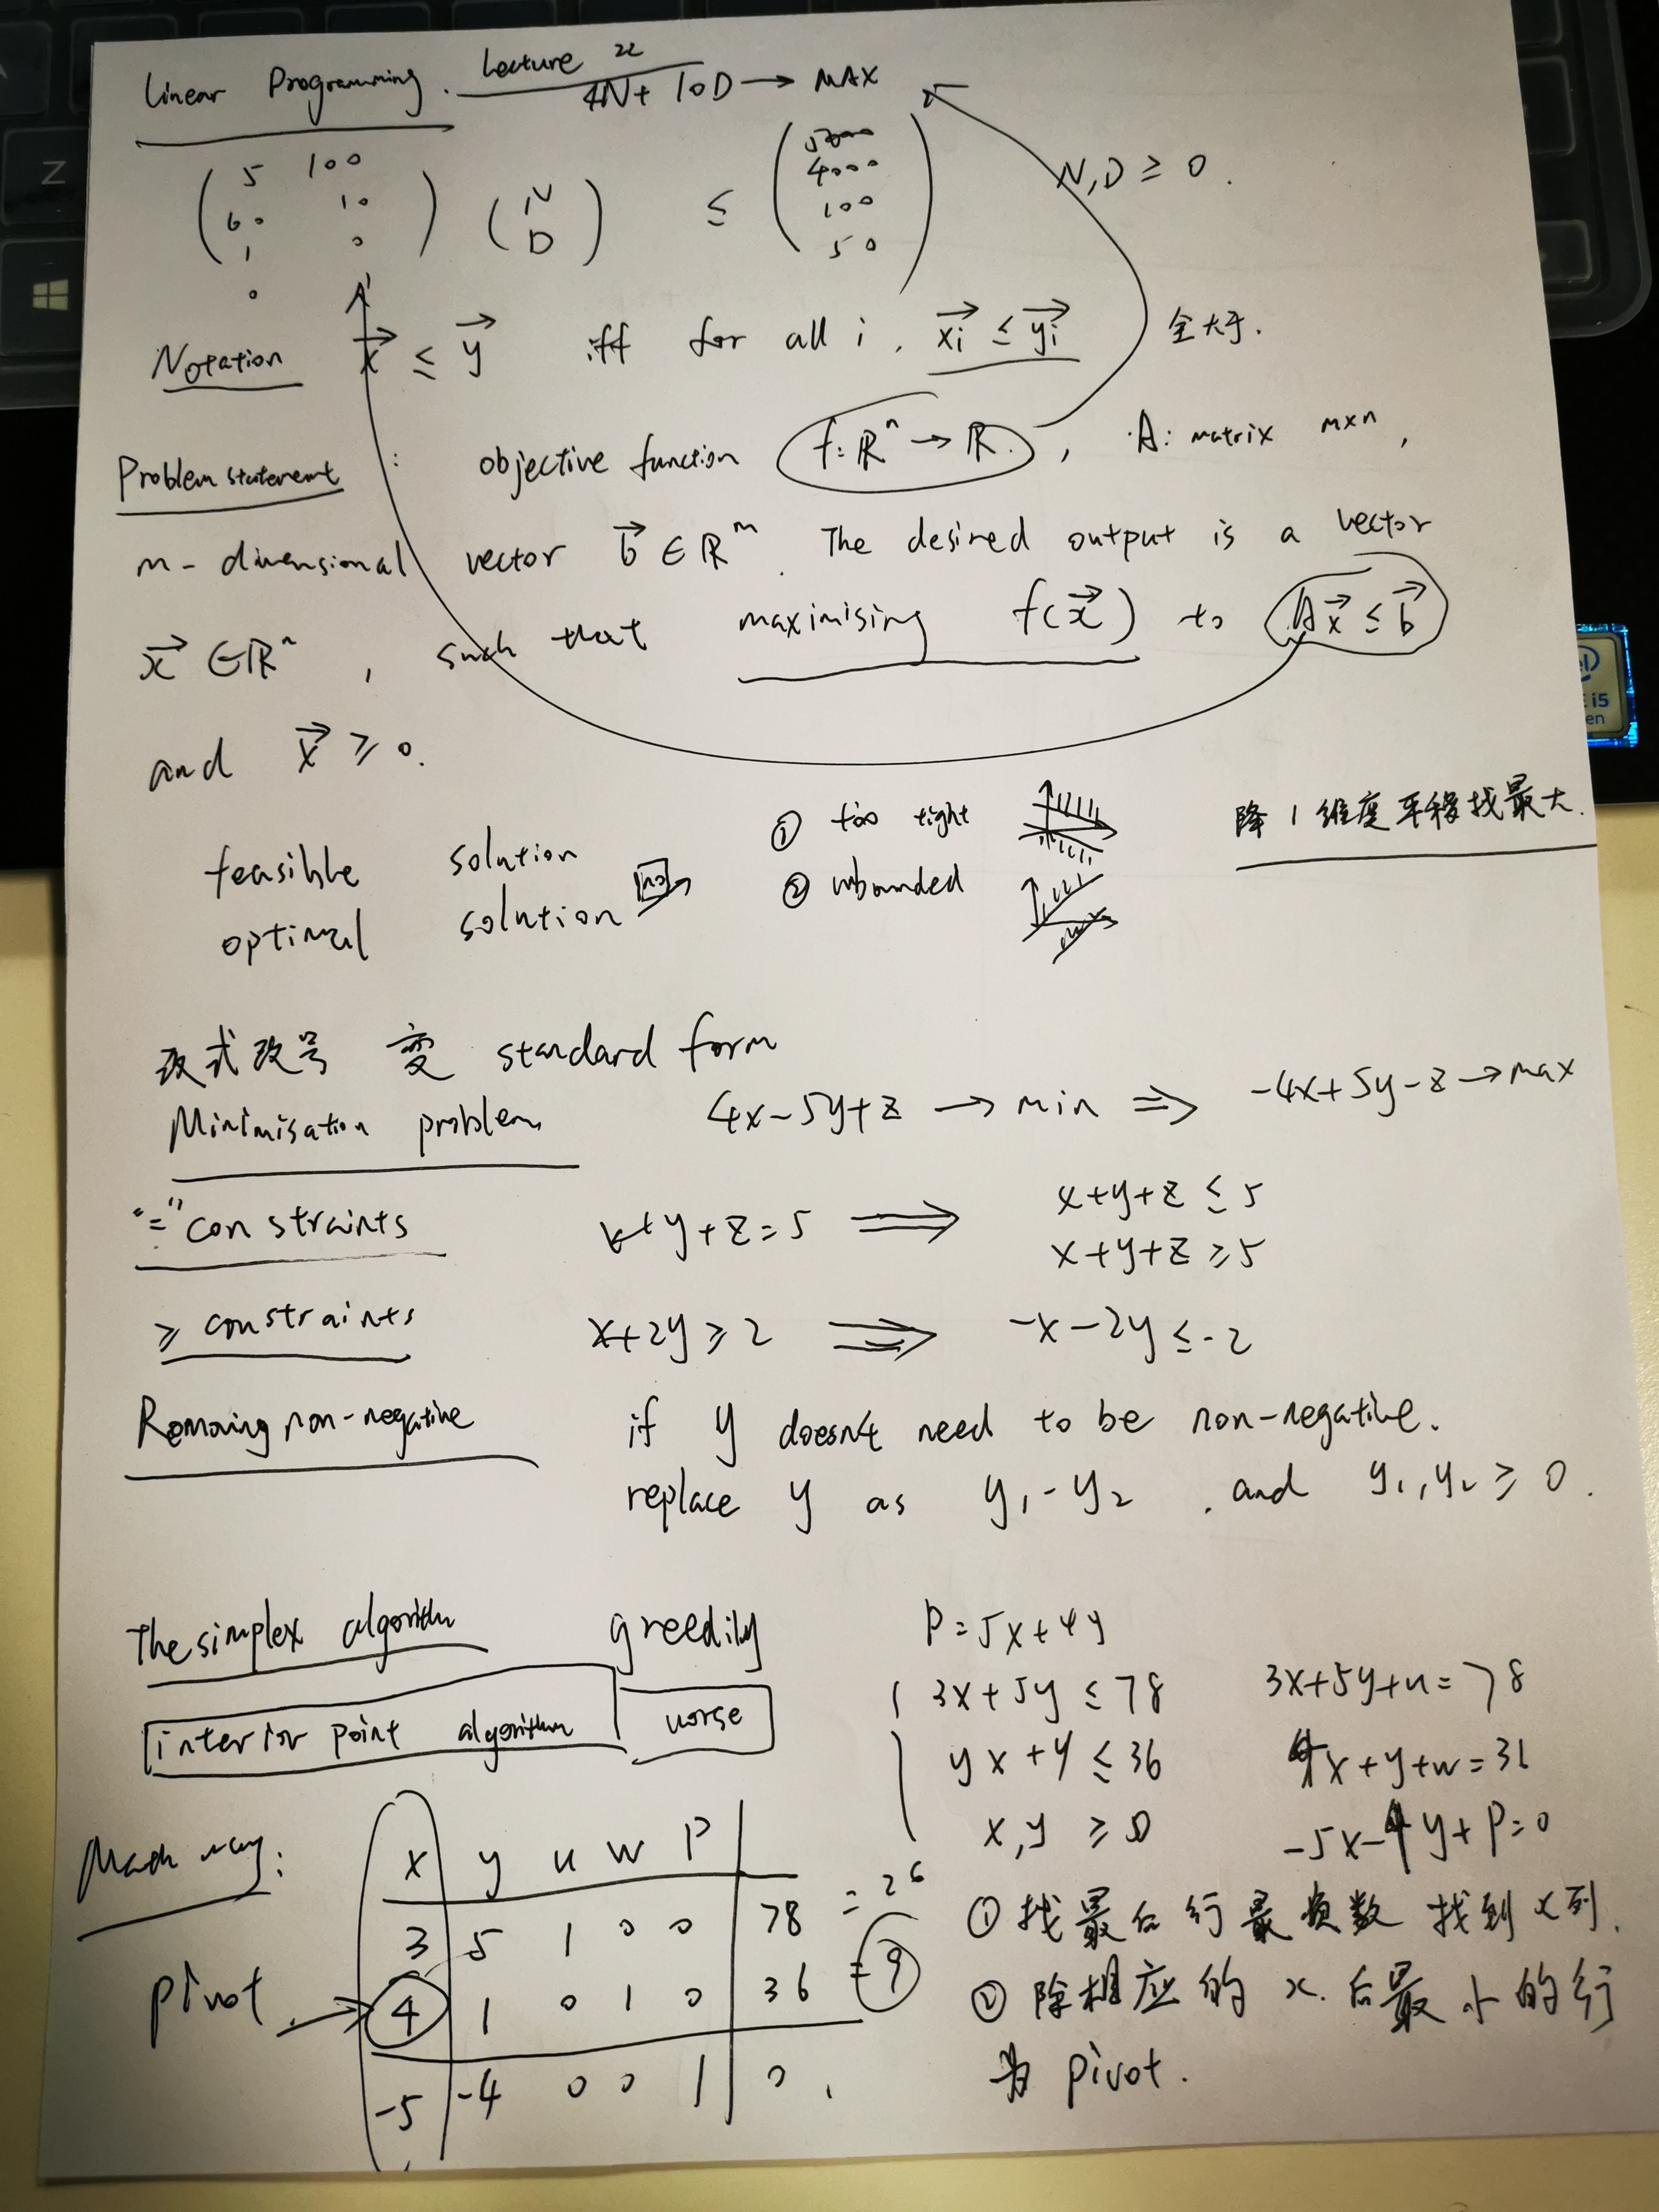 Linear Programming. Lecture 22
4N + 10D → MAX
( 5 100
60 10
1 0
0 ) ( N
D ) ≤ ( 5000
4000
100
50 ) N, D ≥ 0.
Notation x⃗ ≤ y⃗ iff for all i, x⃗i ≤ y⃗i 全大于.
Problem statement: objective function f: ℝⁿ → ℝ, A: matrix m×n,
m-dimensional vector b⃗ ∈ ℝᵐ. The desired output is a vector
x⃗ ∈ ℝⁿ, such that maximising f(x⃗) to Ax⃗ ≤ b⃗
and x⃗ ≥ 0.
feasible solution
optimal solution no →
① too tight
② unbounded
降1维度平移找最大.
改式改号 变 standard form
Minimisation problem 4x-5y+z → min ⇒ -4x+5y-z → max
"=" constraints x+y+z=5 ⟹ x+y+z ≤ 5
x+y+z ≥ 5
≥ constraints x+2y ≥ 2 ⟹ -x-2y ≤ -2
Removing non-negative if y doesn't need to be non-negative.
replace y as y₁-y₂, and y₁,y₂ ≥ 0.
The simplex algorithm greedily
interior point algorithm worse
P=5x+4y
3x+5y ≤ 78 3x+5y+u=78
yx+y ≤ 36 4x+y+w=36
x,y ≥ 0 -5x-4y+P=0
Math way:
x y u w P
3 5 1 0 0 78 = 26
pivot → 4 1 0 1 0 36 = 9
-5 -4 0 0 1 0.
① 找最后行最负数 找到x列.
② 除相应的x后最小的行
为 pivot.
Z
i5